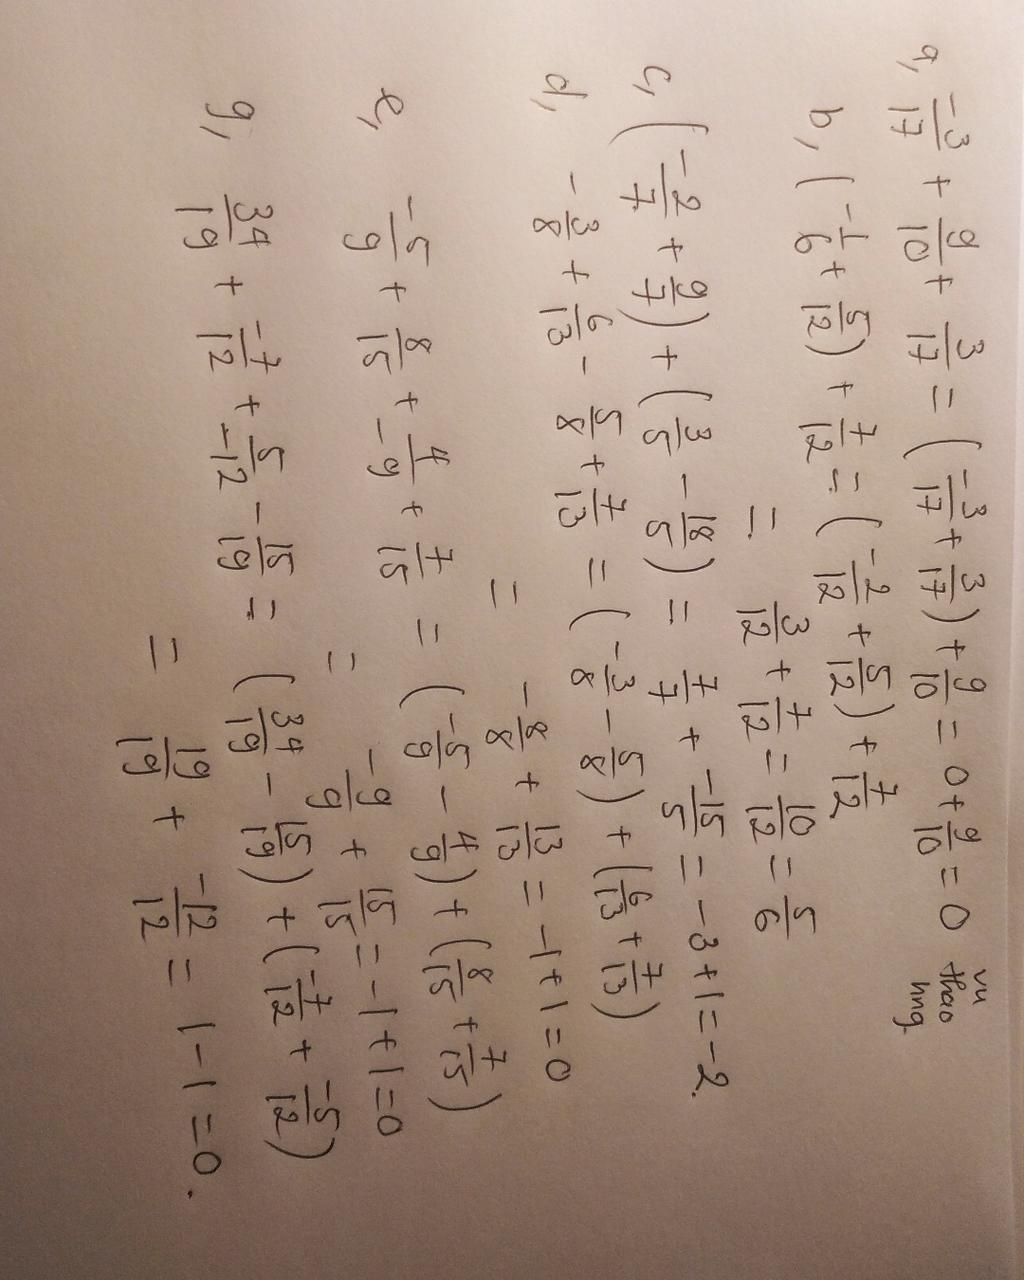 a, -3/17 + 9/10 + 3/17 = (-3/17 + 3/17) + 9/10 = 0 + 9/10 = 0
vu thao hng
b, (-1/6 + 5/12) + 7/12 = (-2/12 + 5/12) + 7/12
= 3/12 + 7/12 = 10/12 = 5/6
c, (-2/7 + 9/7) + (3/5 - 18/5) = 7/7 + -15/5 = -3 + 1 = -2.
d, -3/8 + 6/13 - 5/8 + 7/13 = (-3/8 - 5/8) + (6/13 + 7/13)
= -8/8 + 13/13 = -1 + 1 = 0
e, -5/9 + 8/15 + 4/-9 + 7/15 = (-5/9 - 4/9) + (8/15 + 7/15)
= -9/9 + 15/15 = -1 + 1 = 0
g, 34/19 + -7/12 + 5/-12 - 15/19 = (34/19 - 15/19) + (-7/12 + -5/12)
= 19/19 + -12/12 = 1 - 1 = 0.